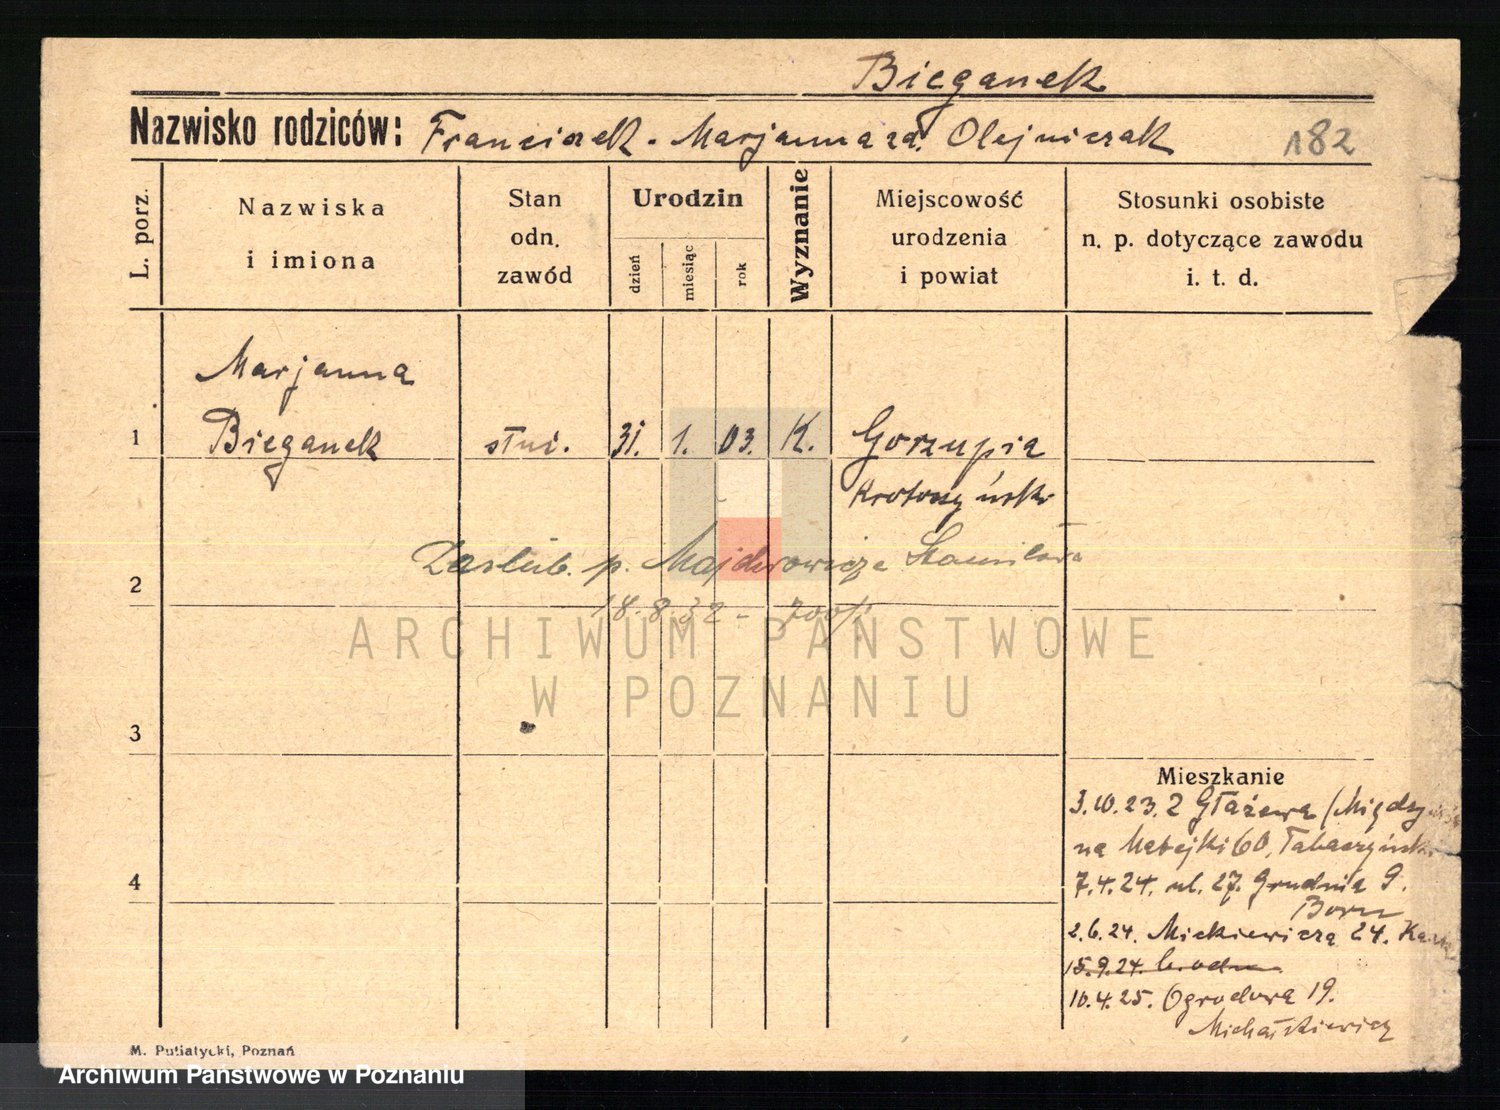 Bieganek
Nazwisko rodziców: Franciszek - Marjanna zd. Olejniczak 182
L. porz.
Nazwiska
i imiona
Stan
odn.
zawód
Urodzin
dzień
miesiąc
rok
Wyznanie
Miejscowość
urodzenia
i powiat
Stosunki osobiste
n. p. dotyczące zawodu
i. t. d.
Marjanna
1 Bieganek służ. 31. 1. 03. K. Gorzupia
Krotoszyński
Zaślub. p. Majdrowicza Stanisława
2
18.8.32 -
ARCHIWUM PAŃSTWOWE
W POZNANIU
3
Mieszkanie
3.10.23. z Głażewa
na Matejki 60,
4
7.4.24. ul. 27. Grudnia 9.
Born
2.6.24. Mickiewicza 24.
15.9.24.
10.4.25. Ogrodowa 19.
Michałkiewicz
M. Putiatycki, Poznań
Archiwum Państwowe w Poznaniu